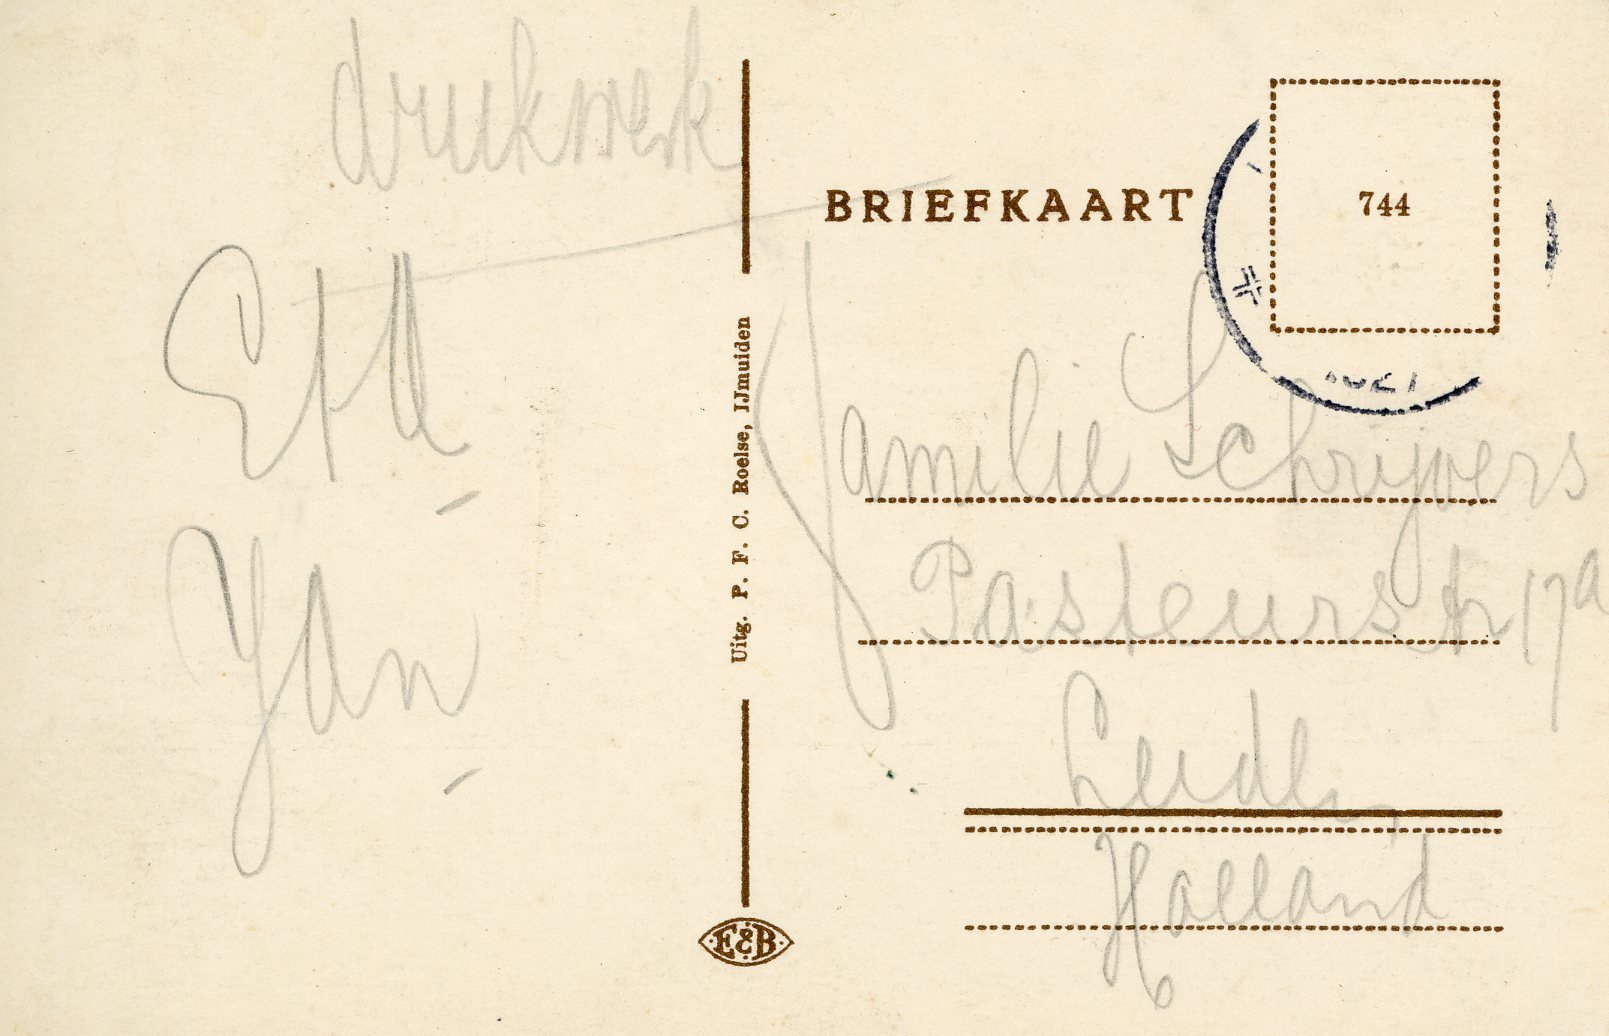 drukwerk
Eta
Jan
Uitg. P. F. C. Roelse, IJmuiden
E&B
BRIEFKAART
744
Familie Schrijvers
Pasteurstr 17a
Leiden
Holland